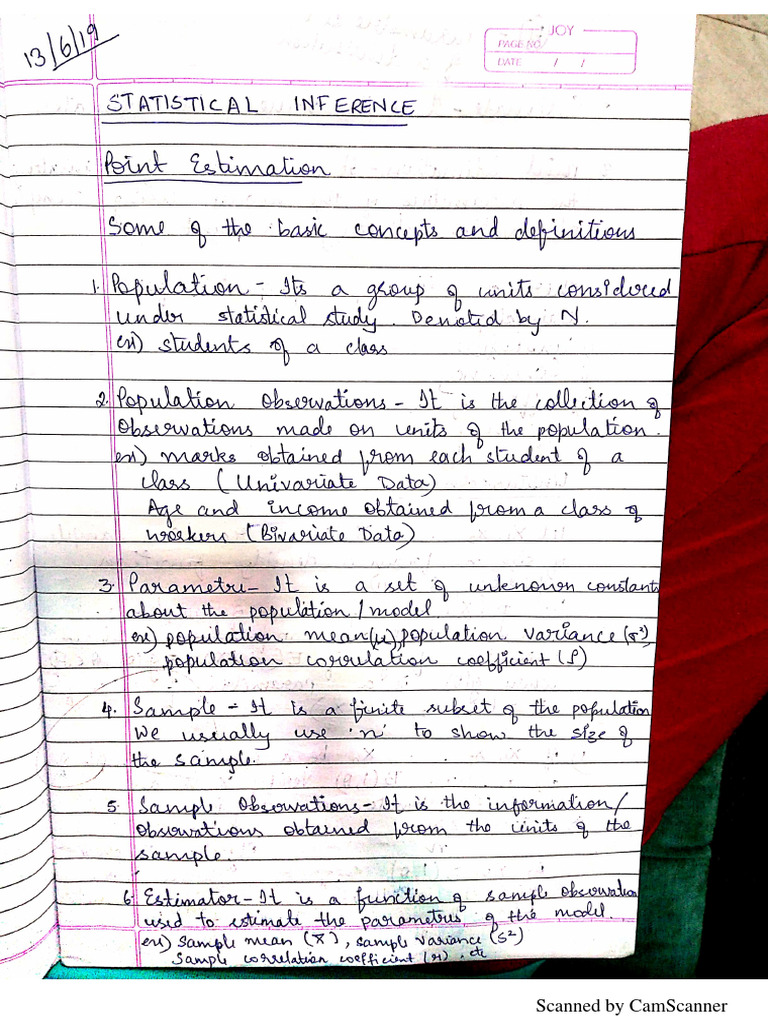 13/6/19
JOY
PAGE NO.
DATE / /
STATISTICAL INFERENCE
Point Estimation
Some of the basic concepts and definitions
1. Population - Its a group of units considered
under statistical study. Denoted by N.
ex) students of a class
2. Population Observations - It is the collection of
observations made on units of the population.
ex) marks obtained from each student of a
class (Univariate Data)
Age and income obtained from a class of
workers - (Bivariate Data)
3. Parameter - It is a set of unknown constants
about the population / model
ex) population mean (μ), population variance (σ²)
population correlation coefficient (ρ)
4. Sample - It is a finite subset of the population
We usually use 'n' to show the size of
the sample.
5. Sample Observations - It is the information/
observations obtained from the units of the
sample.
6. Estimator - It is a function of sample observation
used to estimate the parametres of the model.
ex) sample mean (X̄), sample variance (s²)
sample correlation coefficient (r), etc
Scanned by CamScanner